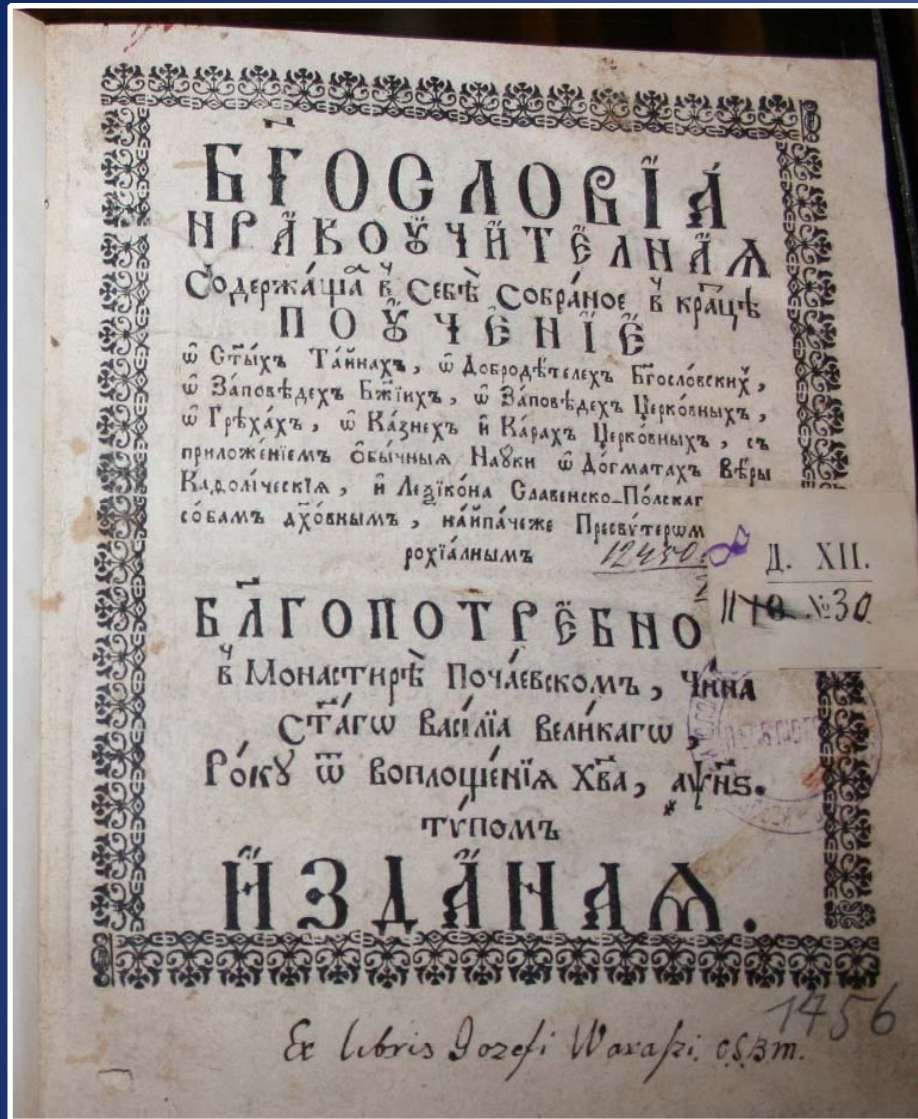 БГ҃ОСЛОВІА
НРАВОꙋЧИТЕЛНАѦ
Содержа́щаѧ в̾ Себѣ̀ Собра́ное в̾ кра́тцѣ
ПОꙋЧЕНІЕ
ѡ҆ Ст҃ы́хъ Та́йнахъ, ѡ҆ Добродѣ́телехъ Бг҃осло́вских̾,
ѡ҆ За́повѣдехъ Бж҃іихъ, ѡ҆ За́повѣдехъ Церко́вныхъ,
ѡ҆ Грѣха́хъ, ѡ҆ Ка́знехъ и҆ Ка́рахъ Церко́вныхъ, съ
приложе́нїемъ ѻ҆бы́чныѧ Наꙋ́ки ѡ҆ До́гматахъ Вѣ́ры
Каѳоли́ческїѧ, и҆ Леѯїко́на Славенско-По́лскаг
со́бамъ дх҃о́внымъ, на́ипачеже Пресвѵ́терѡм
рохїа́лнымъ 12450
Д. XII.
№ 30
БЛ҃ГОПОТРЕБНО
в̾ Монастирѣ̀ Поча́евскомъ, Чи́на
Ст҃а́гѡ Васи́лїа Вели́кагѡ,
Ро́кꙋ ѿ воплоще́нїѧ Хв҃а, аѱн҃ѕ.
тѵ́помъ
ИЗДАНАѦ.
1756
Ex libris Jozefi C.S.B.m.